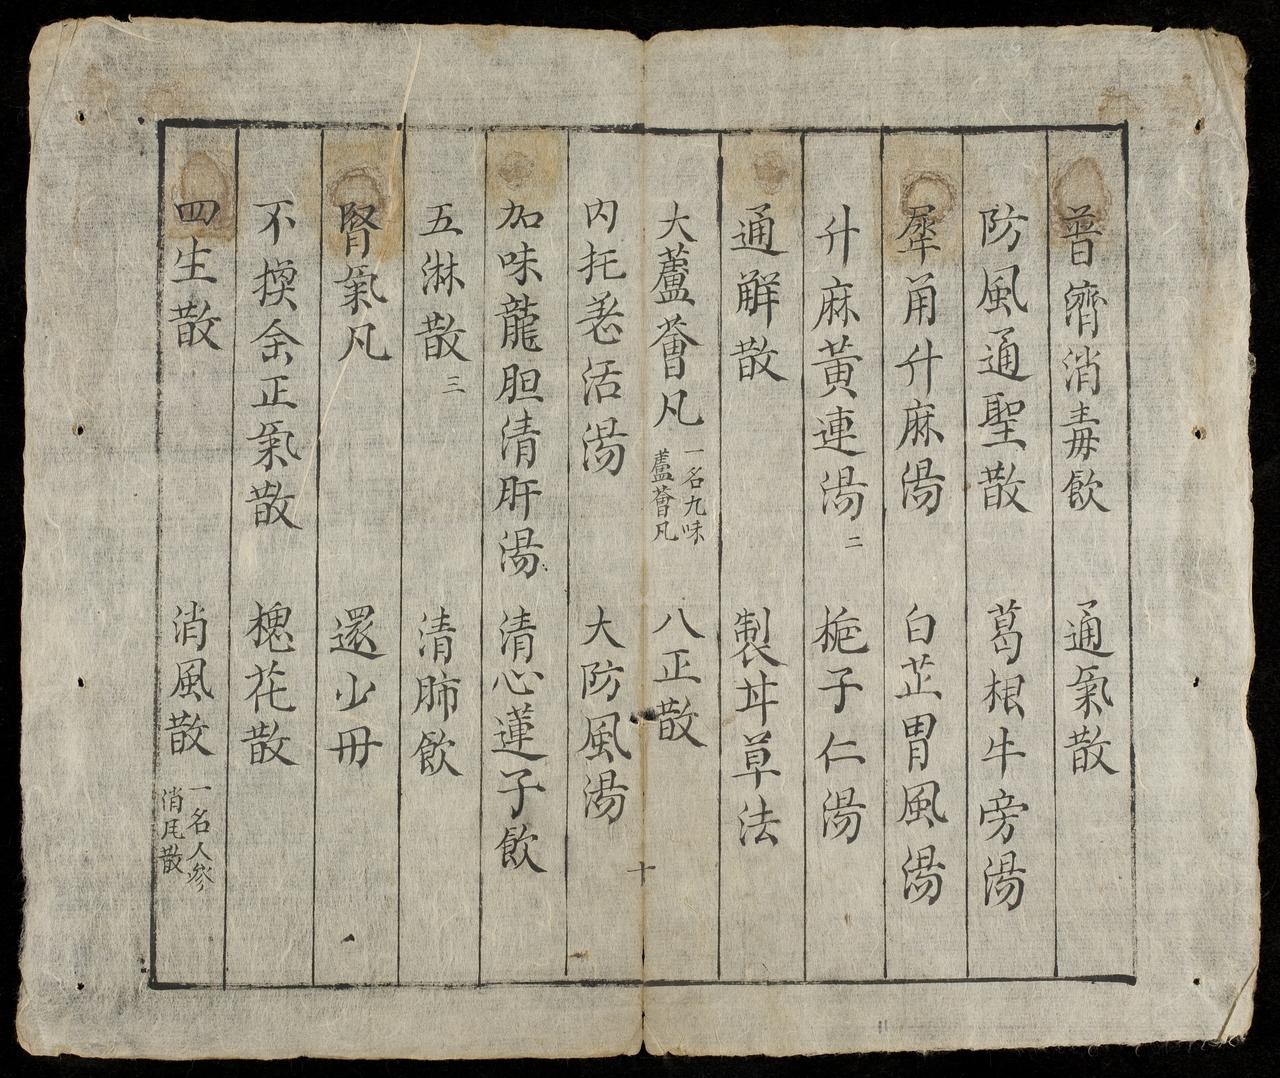 普濟消毒飲 通氣散
防風通聖散 葛根牛旁湯
犀角升麻湯 白芷胃風湯
升麻黃連湯 二 梔子仁湯
通解散 製甘草法
大蘆薈凡 一名九味蘆薈凡 八正散
十
內托羌活湯 大防風湯
加味龍胆清肝湯 清心蓮子飲
五淋散 三 清肺飲
腎氣凡 還少丹
不換金正氣散 槐花散
四生散 消風散 一名人參消風散